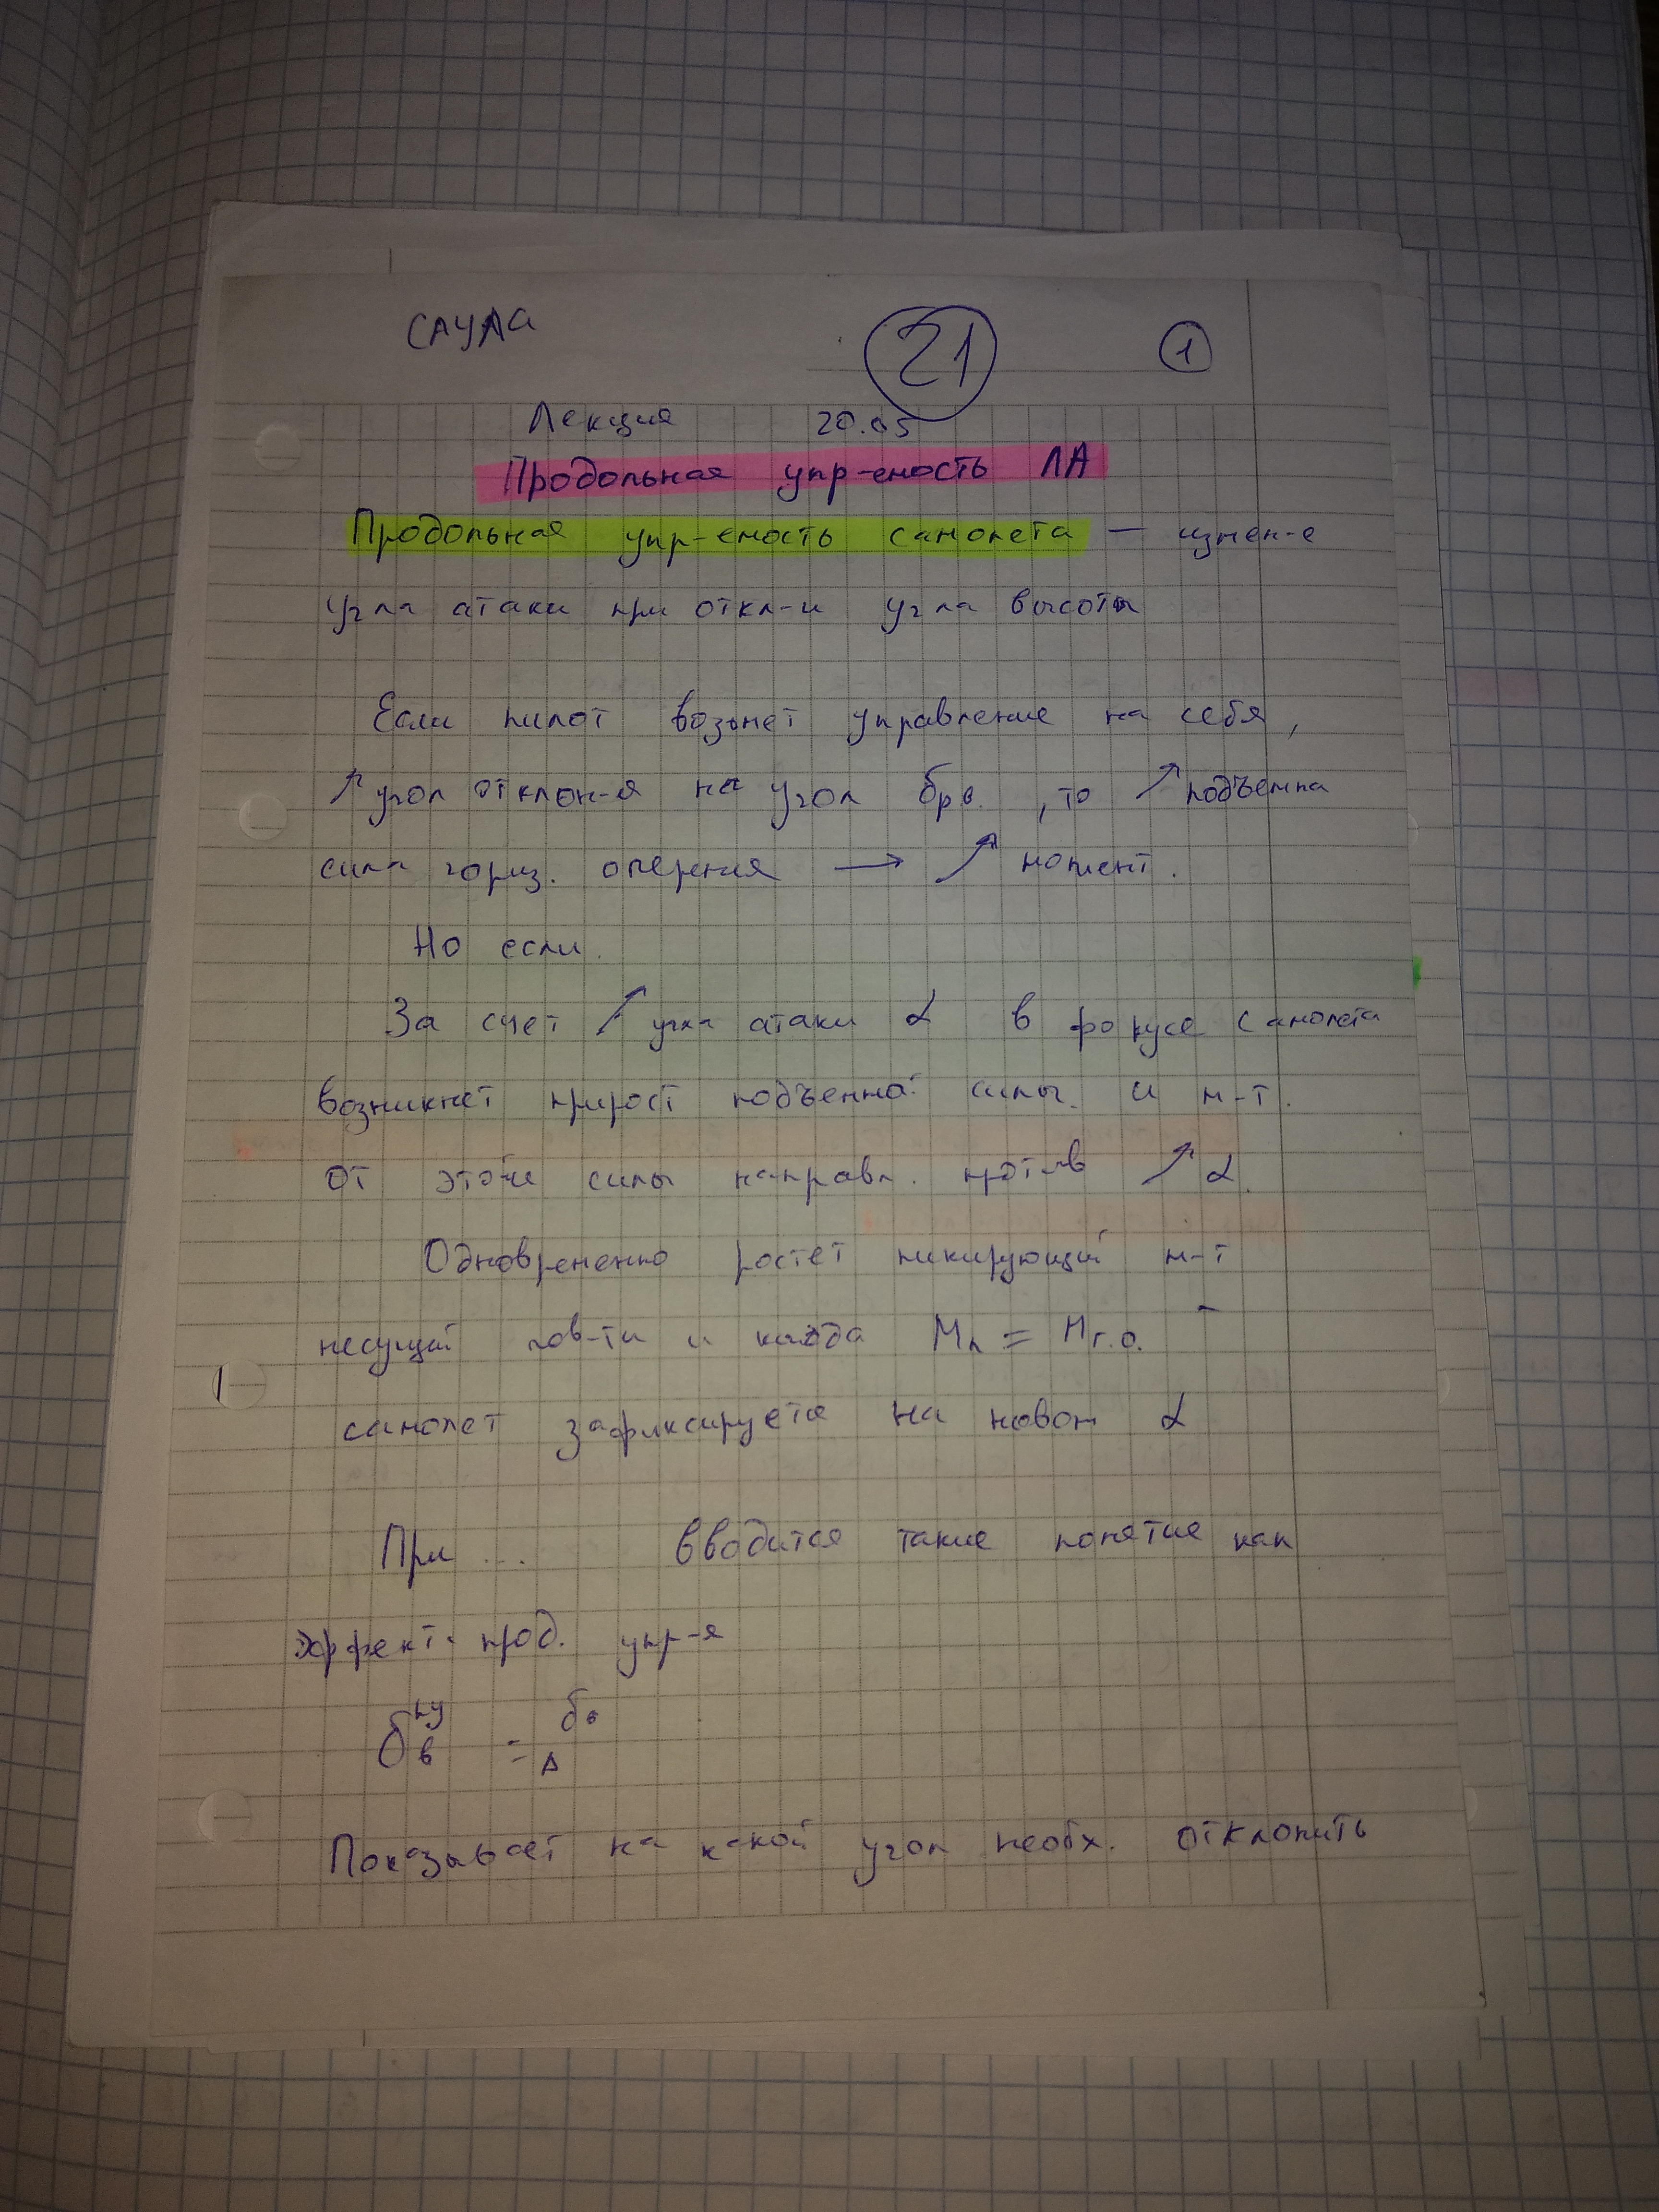 САУЛА
21
1
Лекция 20.05
Продольная упр-емость ЛА
Продольная упр-емость самолета — измен-е
угла атаки при откл-и угла высоты
Если пилот возьмет управление на себя,
↗ угол отклон-я на угол δрв. , то ↗ подъемна
сила гориз. оперения → ↗ момент.
Но если
За счет ↗ угла атаки α в фокусе самолета
возникнет прирост подъемной силы и м-т.
от этой силы направл. против ↗ α.
Одновременно ростет пикирующий м-т
несущей пов-ти и когда Mк = Mг.о.
самолет зафиксируется на новом α
При ... вводится такие понятие как
эффект. прод. упр-я
δв = δв Δ
Показывает на какой угол необх. отклонить